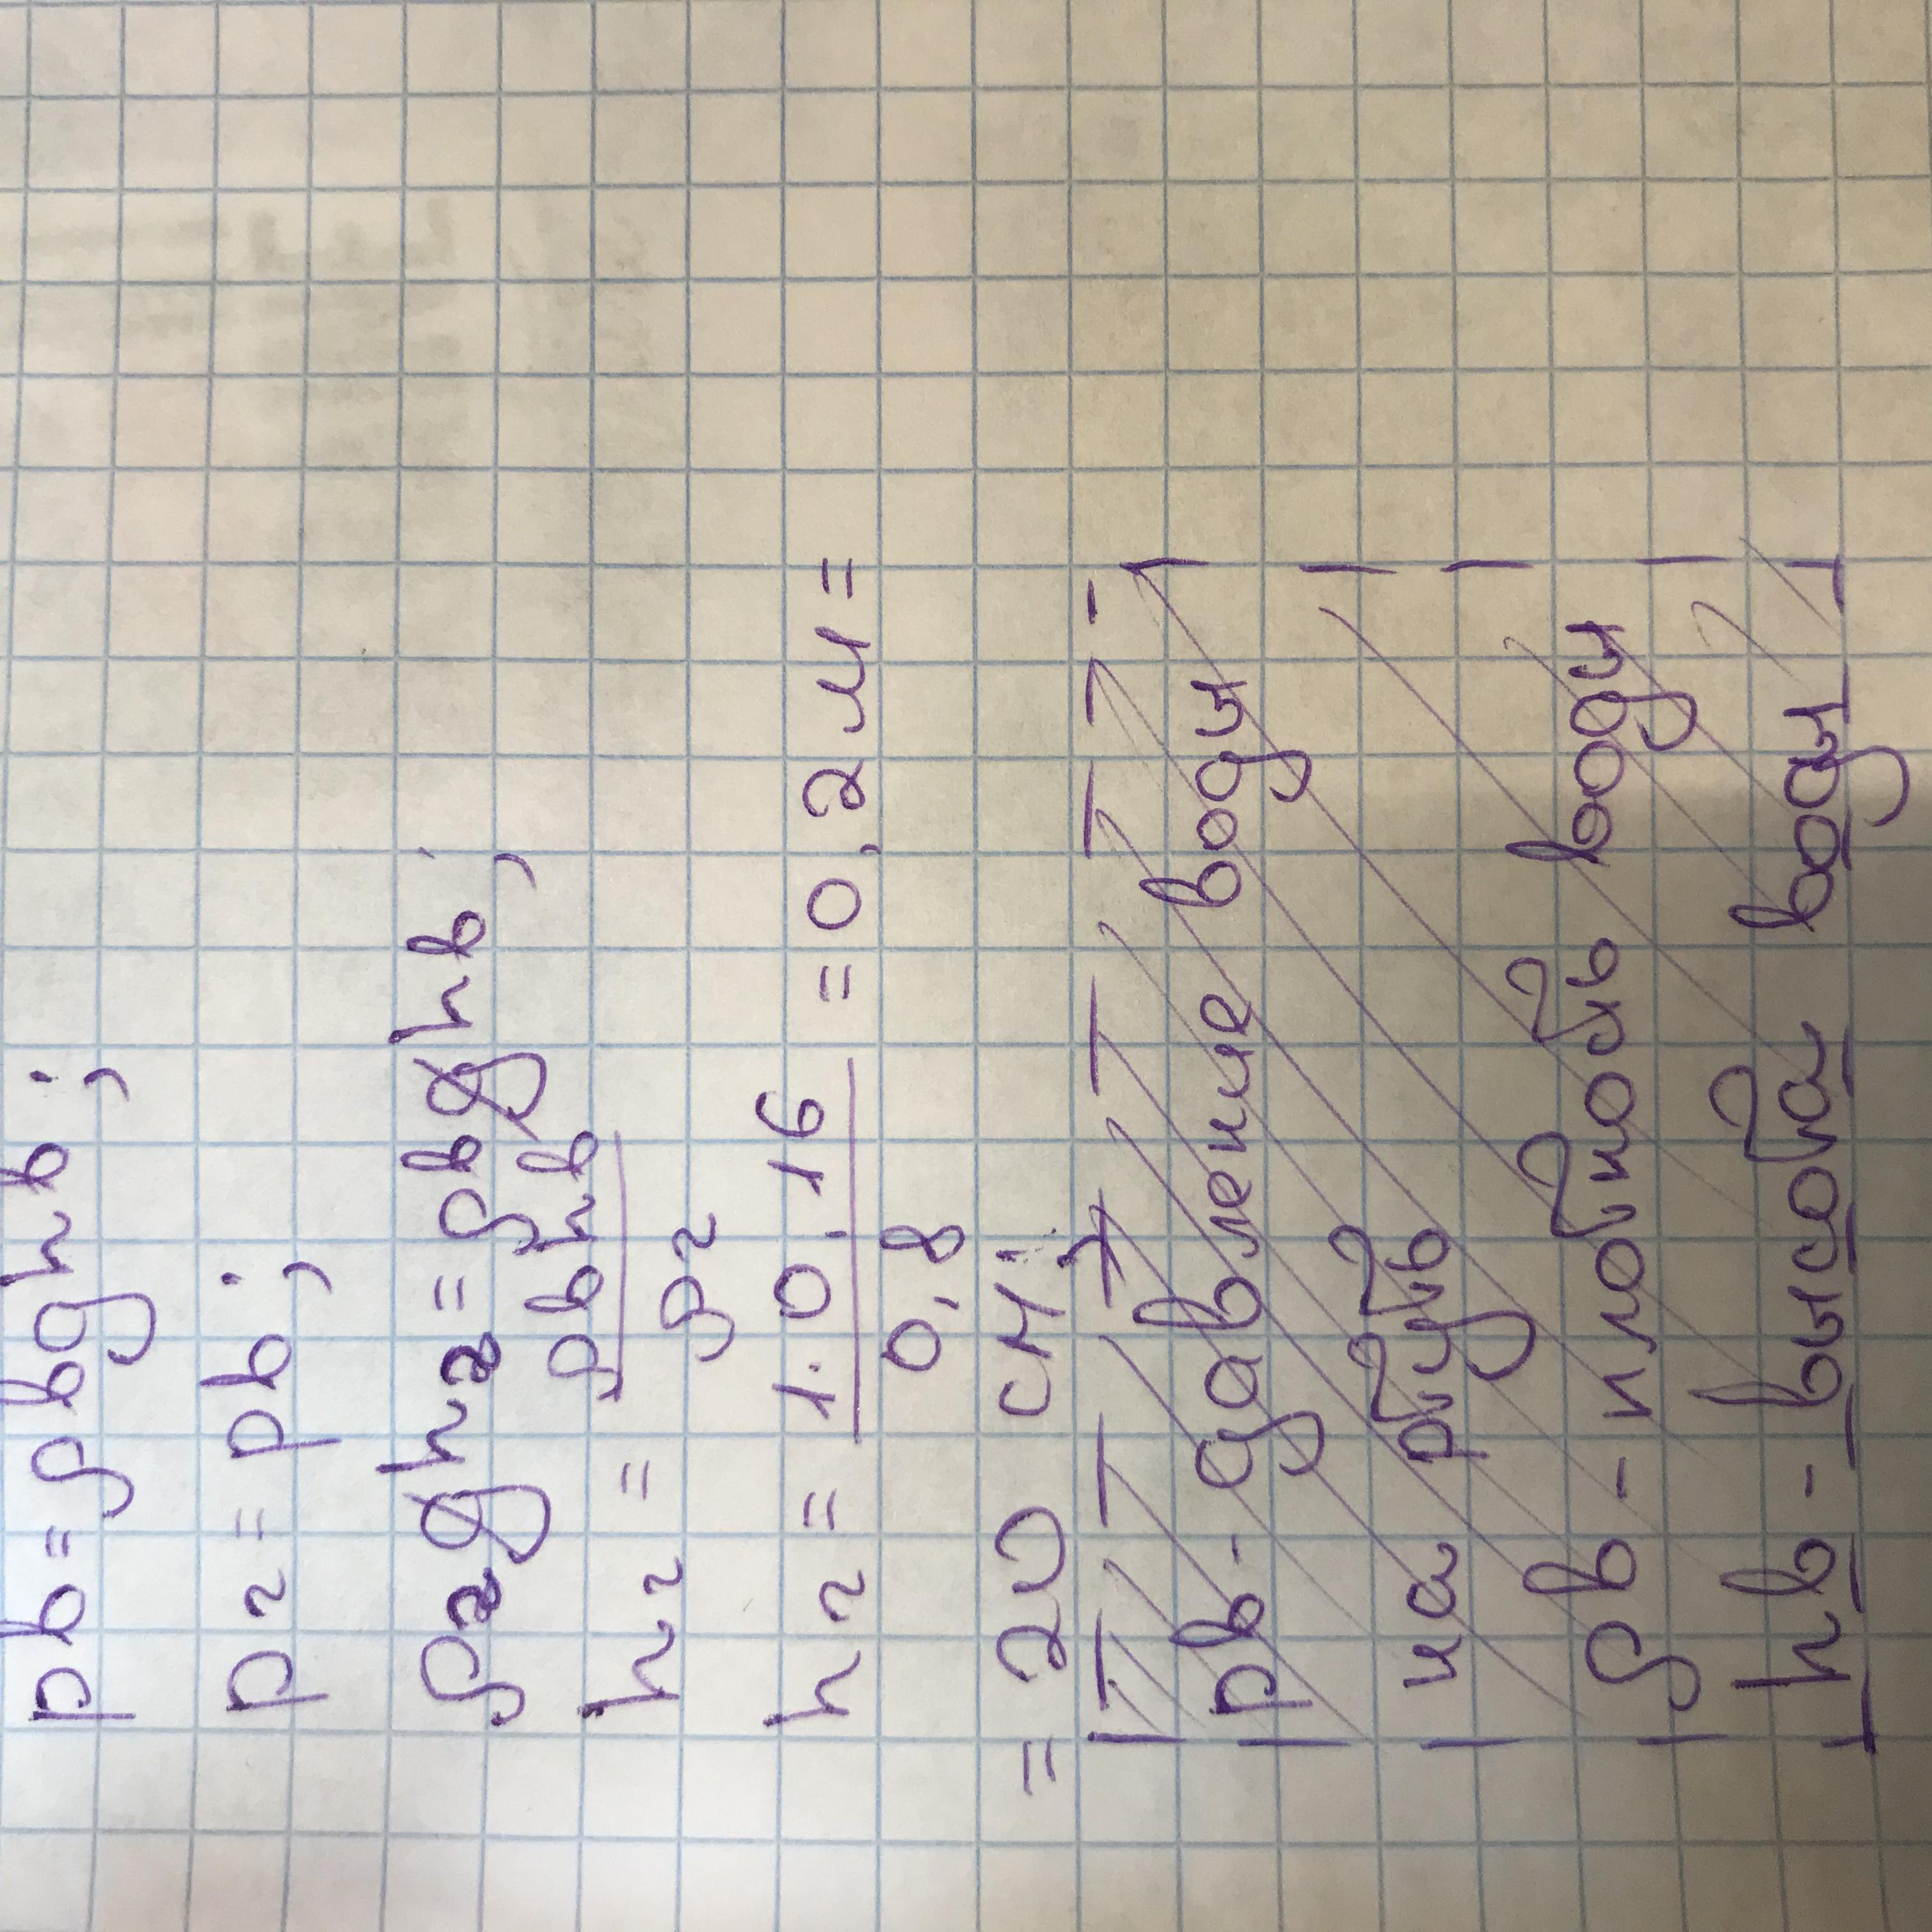 pв = ρвghв;
p2 = pв;
ρ2gh2 = ρвghв;
h2 = ρвhв / ρ2
h2 = 1·0,16 / 0,8 = 0,2 м =
= 20 см;
pв - давление воды
на ртуть
ρв - плотность воды
hв - высота воды